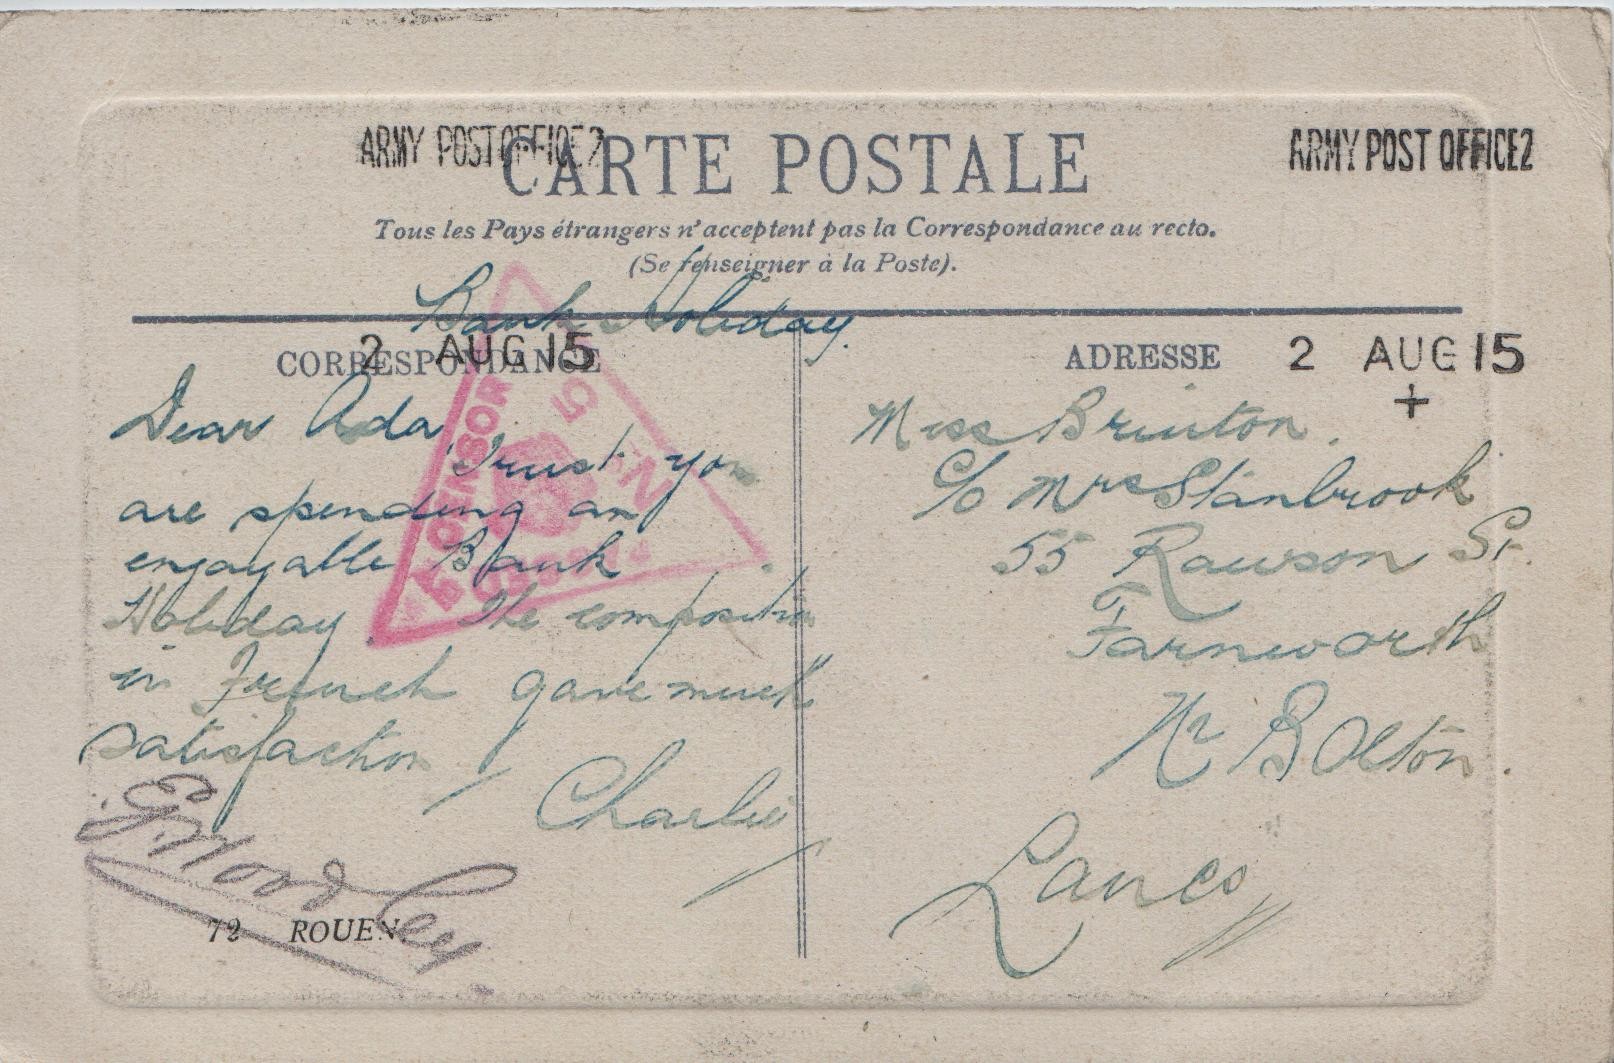 ARMY POST OFFICE 2
CARTE POSTALE
ARMY POST OFFICE 2
Tous les Pays étrangers n'acceptent pas la Correspondance au recto.
(Se renseigner à la Poste).
Bank Holiday.
CORRESPONDANCE
2 AUG 15
Dear Ada,
Trust you
are spending an
enjoyable Bank
Holiday. The composition
in French gave much
satisfaction
Charlie
72 ROUEN
CENSOR
ADRESSE
2 AUG 15
+
Miss Brinton.
C/o Mrs Stanbrook
55 Rawson St.
Farnworth
Nr Bolton.
Lancs